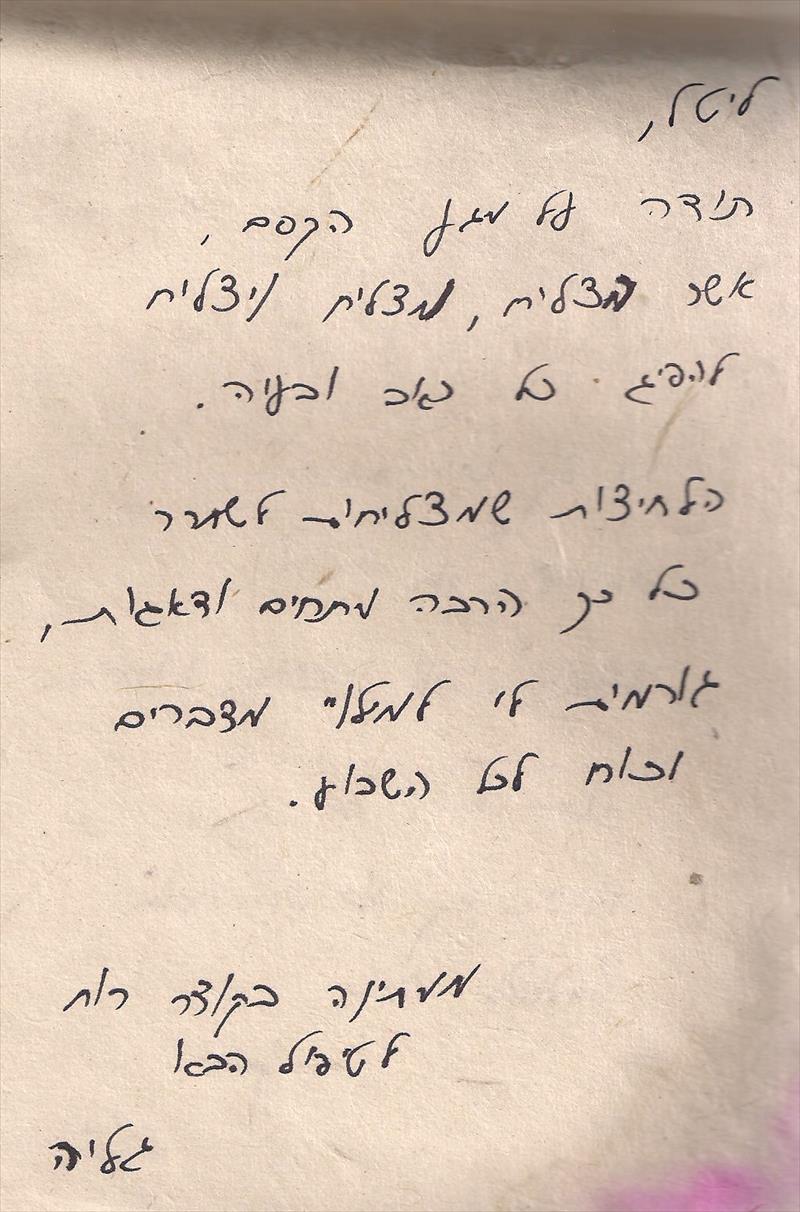 ליטל,
תודה על מגע הקסם,
אשר הצליח, מצליח ויצליח
להפיג כל כאב ובעיה.
הלחיצות שמצליחות לשחרר
כל כך הרבה מתחים ודאגות,
גורמות לי למילוי מצברים
וכוח לכל השבוע.
ממתינה בקוצר רוח
לטיפול הבא!
גליה